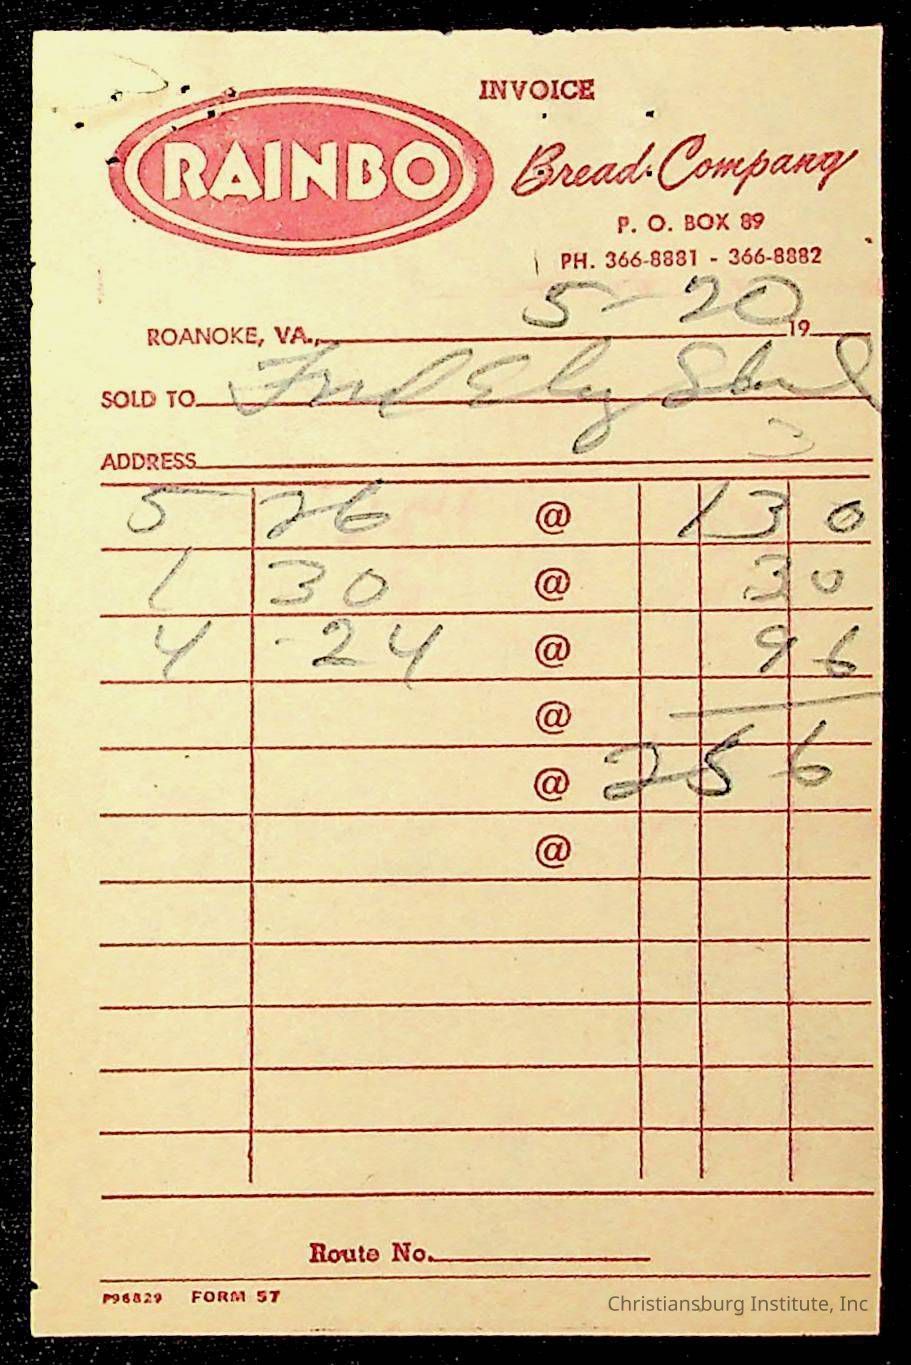 INVOICE
RAINBO
Bread Company
P. O. BOX 89
PH. 366-8881 - 366-8882
5-20
ROANOKE, VA., 19
SOLD TO
ADDRESS
5 26 @ 130
1 30 @ 30
4 24 @ 96
@
@ 256
@
Route No.
P96829 FORM 57
Christiansburg Institute, Inc